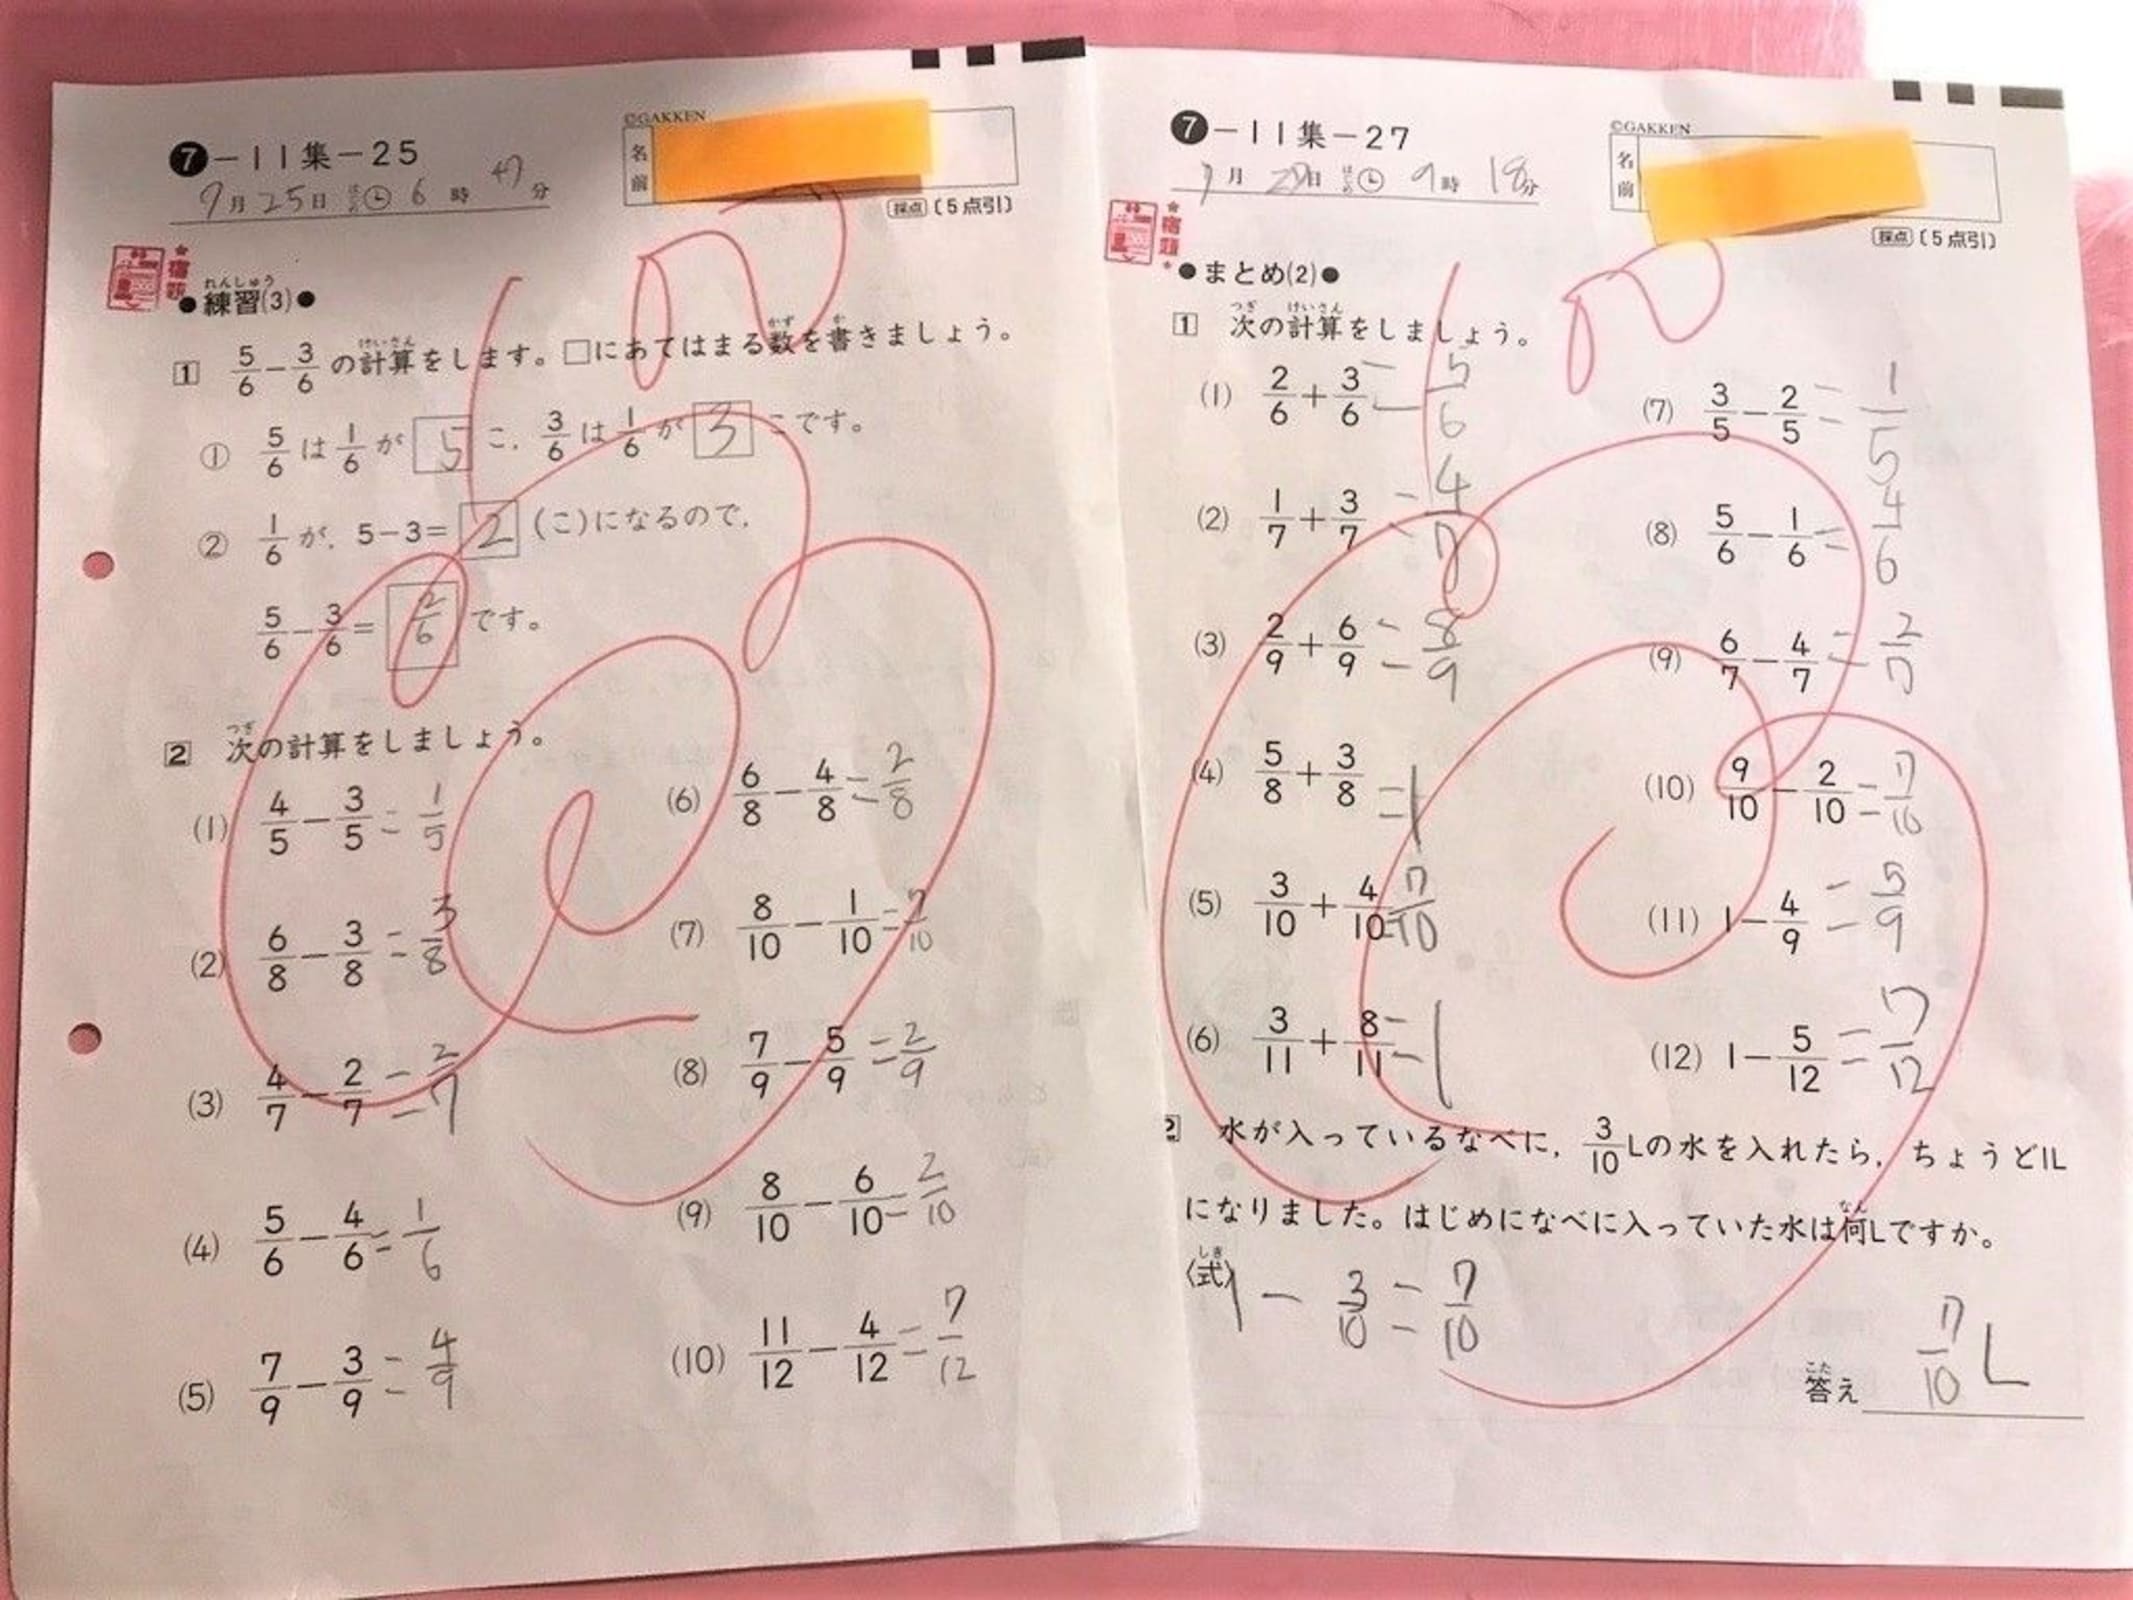 ❼－11集－25
©GAKKEN
名前
9月25日 はじめ 6時47分
採点〔5点引〕
宿題
●練習(3)●
れんしゅう
1 5/6－3/6の計算をします。□にあてはまる数を書きましょう。
けいさん かず か
① 5/6は1/6が5こ，3/6は1/6が3こです。
② 1/6が，5－3＝2（こ）になるので，
5/6－3/6＝2/6です。
2 次の計算をしましょう。
つぎ
(1) 4/5－3/5＝1/5
(2) 6/8－3/8＝3/8
(3) 4/7－2/7＝2/7
(4) 5/6－4/6＝1/6
(5) 7/9－3/9＝4/9
(6) 6/8－4/8＝2/8
(7) 8/10－1/10＝7/10
(8) 7/9－5/9＝2/9
(9) 8/10－6/10＝2/10
(10) 11/12－4/12＝7/12
❼－11集－27
©GAKKEN
名前
月 日 はじめ 9時18分
採点〔5点引〕
宿題
●まとめ(2)●
1 次の計算をしましょう。
つぎ けいさん
(1) 2/6＋3/6＝5/6
(2) 1/7＋3/7＝4/7
(3) 2/9＋6/9＝8/9
(4) 5/8＋3/8＝1
(5) 3/10＋4/10＝7/10
(6) 3/11＋8/11＝1
(7) 3/5－2/5＝1/5
(8) 5/6－1/6＝4/6
(9) 6/7－4/7＝2/7
(10) 9/10－2/10＝7/10
(11) 1－4/9＝5/9
(12) 1－5/12＝7/12
2 水が入っているなべに，3/10Lの水を入れたら，ちょうど1L
になりました。はじめになべに入っていた水は何Lですか。
なん
〈式〉1－3/10＝7/10
しき
答え 7/10 L
こた